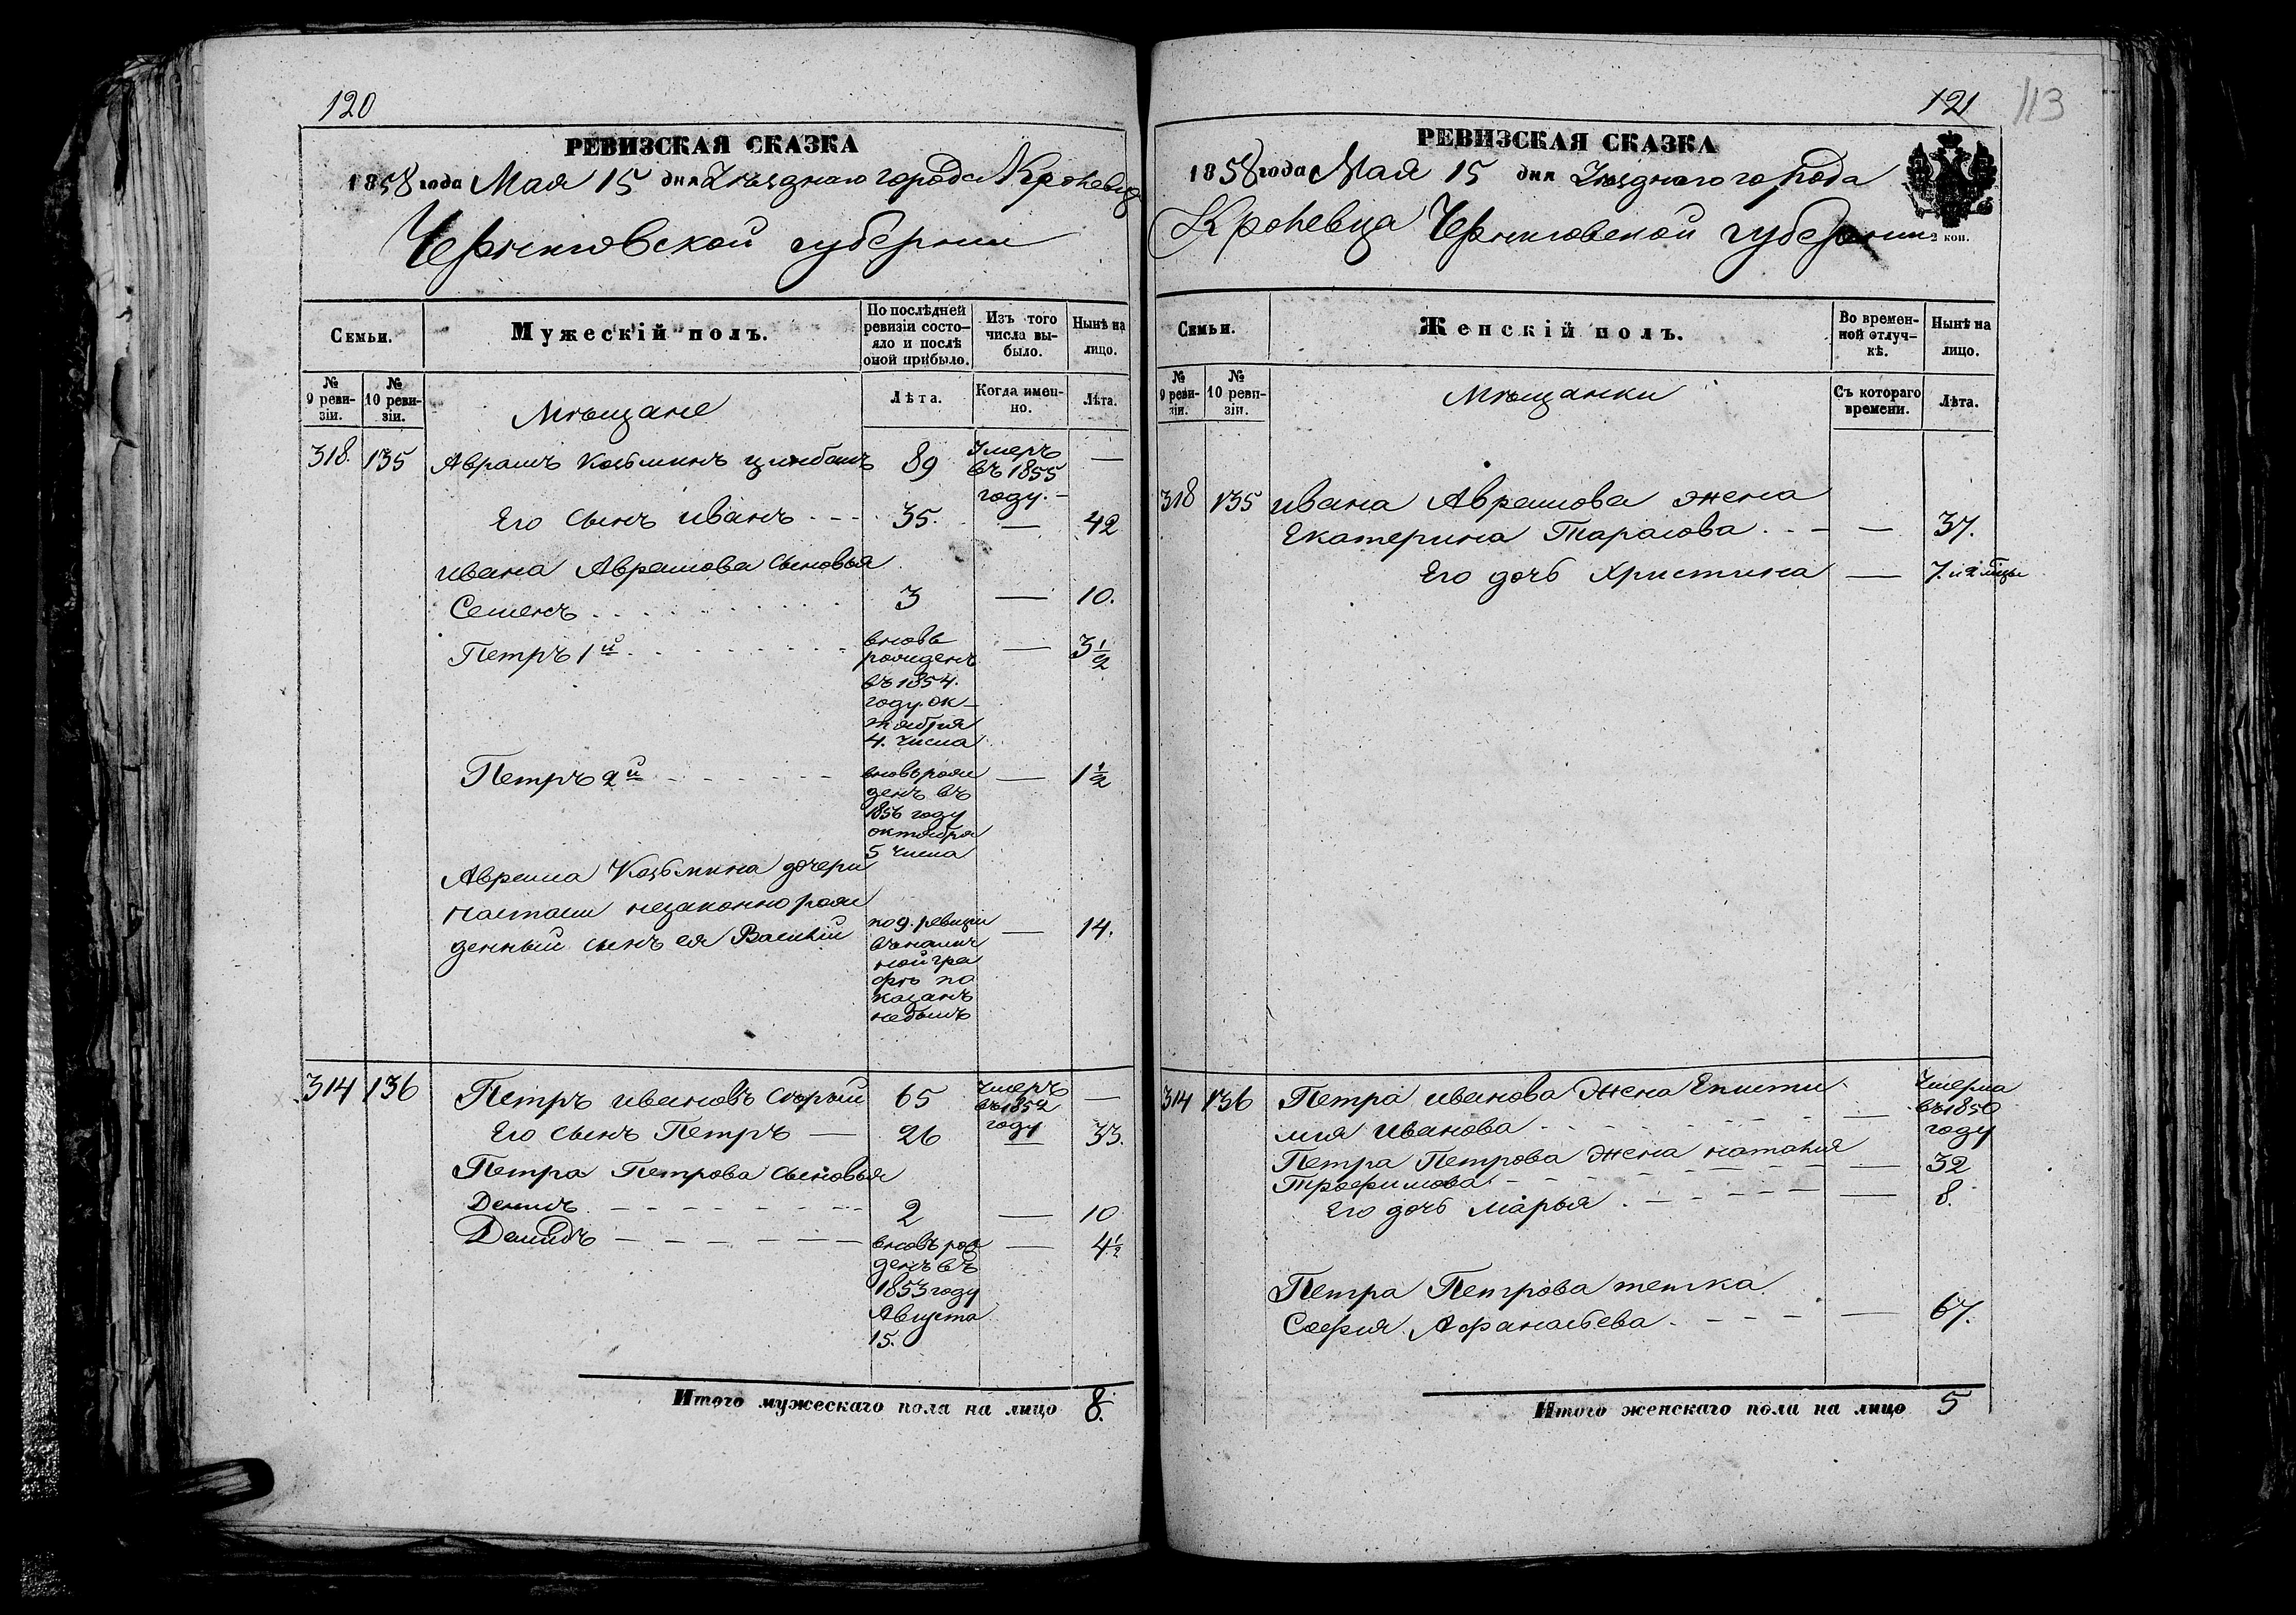 120
РЕВИЗСКАЯ СКАЗКА
1858 года Мая 15 дня Уѣзднаго города Кролевца
Черниговской губернии
Семьи.
Мужескій полъ.
По послѣдней ревизіи состо-
яло и послѣ
оной прибыло.
Изъ того
числа вы-
было.
Нынѣ на
лицо.
№
9 реви-
зіи.
№
10 реви-
зіи.
Мѣщане
Лѣта.
Когда имен-
но.
Лѣта.
318. 135 Аврамъ Козьминъ 89 Умеръ
въ 1855
году. —
Его сынъ Иванъ 35. — 42
Ивана Аврамова сыновья
Семенъ 3 — 10.
Петръ 1й вновь
рожденъ
въ 1854.
году ок-
тября
4. числа
— 3½
Петръ 2й вновь рож
денъ въ
1856 году
октября
5 числа
— 1½
Аврама Козьмина дочери
Настасіи незаконнорож
денный сынъ ея Василій по 9. ревизіи
въ налич
ной гра
фѣ по
казанъ
небылъ
— 14.
314 136 Петръ Ивановъ 65 Умеръ
въ 1852
году
—
Его сынъ Петръ — 26 — 33.
Петра Петрова сыновья
Денисъ 2 — 10
Демидъ вновь рож
денъ въ
1853 году
Августа
15.
— 4½
Итого мужескаго пола на лицо 8.
121
113
РЕВИЗСКАЯ СКАЗКА
1858 года Мая 15 дня Уѣзднаго города
Кролевца Черниговской губернии
2 коп.
Семьи.
Женскій полъ.
Во времен-
ной отлуч-
кѣ.
Нынѣ на
лицо.
№
9 реви-
зіи.
№
10 реви-
зіи.
Мѣщанки
Съ котораго
времени.
Лѣта.
318 135 Ивана Аврамова жена
Екатерина Тарасова — 37.
Его дочь Христина — 7. и 2 мѣсцы
314 136 Петра Иванова жена Еписти
мия Иванова — Умерла
въ 1850
году
Петра Петрова жена Наталия
Трофимова — 32
Его дочь Марья — 8.
Петра Петрова тетка
София Афанасьева — 67.
Итого женскаго пола на лицо 5